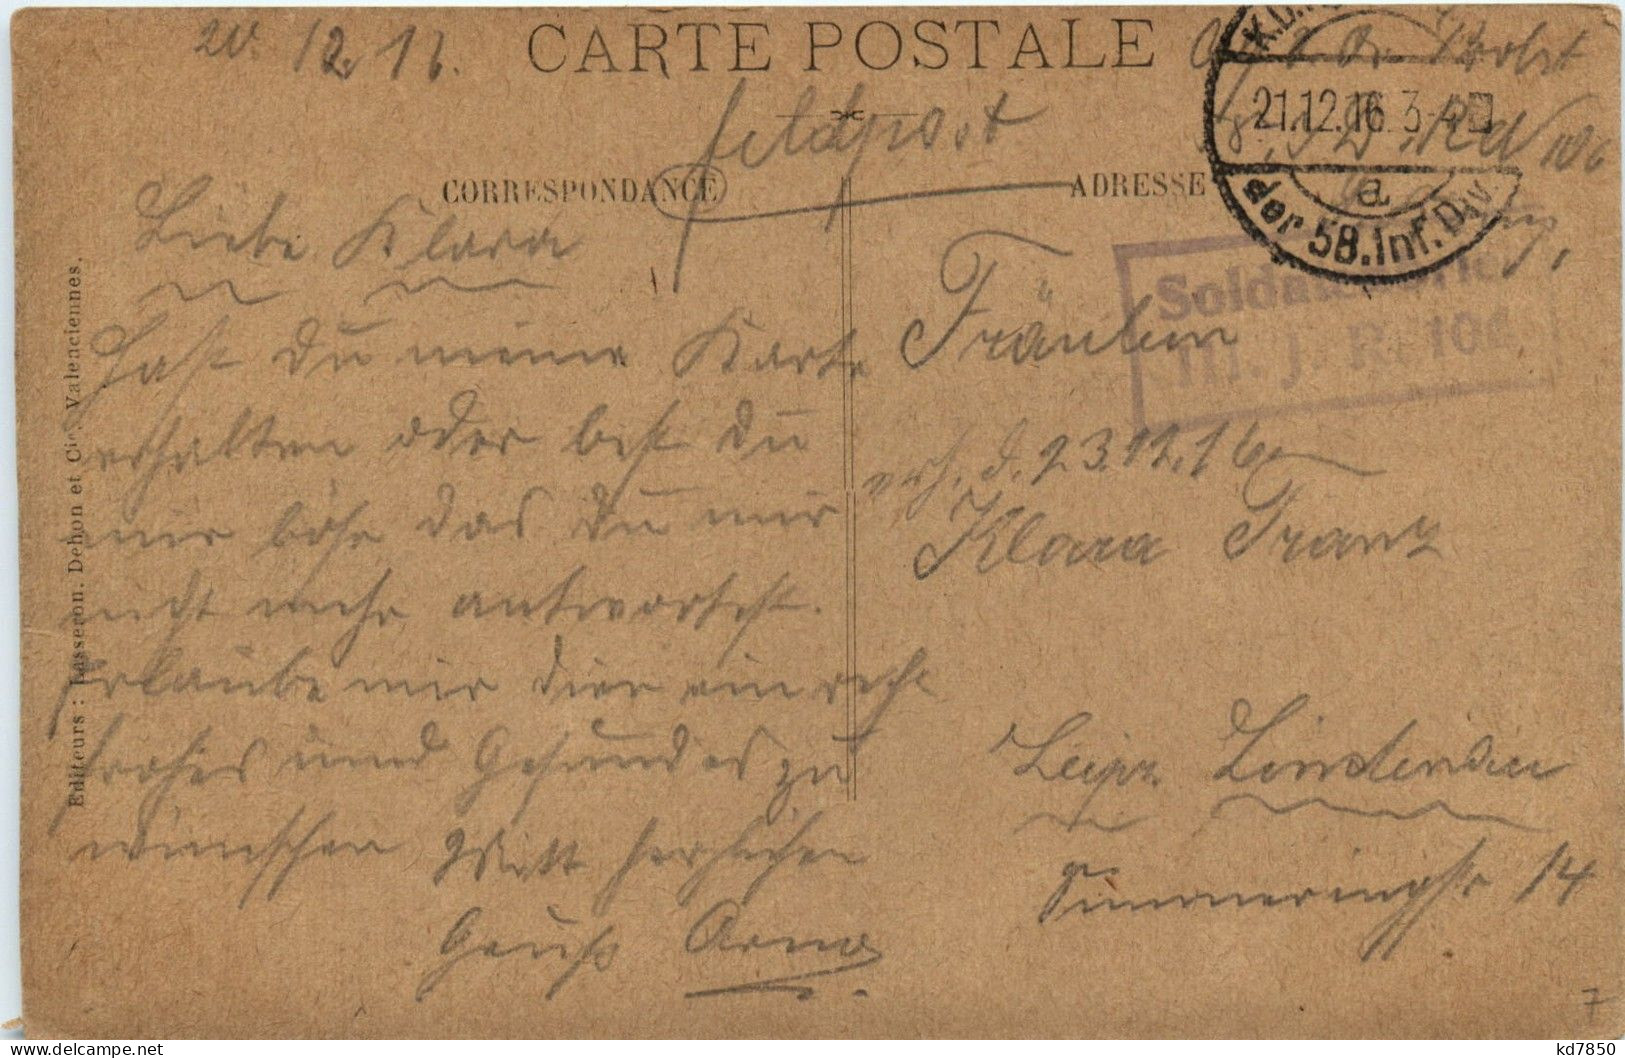 20. 12. 16.
CARTE POSTALE
Feldpost
CORRESPONDANCE
ADRESSE
21.12.16 3-4
a
der 58. Inf. Div.
Soldatenbrief
III. J. R. 106
Liebe Klara
Hast Du meine Karte
erhalten oder bist Du
mir böse das Du mir
nicht mehr antwortest.
Erlaube mir dier ein recht
frohes und Gesundes zu
wünschen Mitt herzlichen
Gruß Arno
Fräulein
erh. d. 23.12.16
Klara Franz
Leipz. Lindenau
Simmeringstr 14
Editeurs: Lasseron, Dehon et Cie, Valenciennes.
7
kd7850